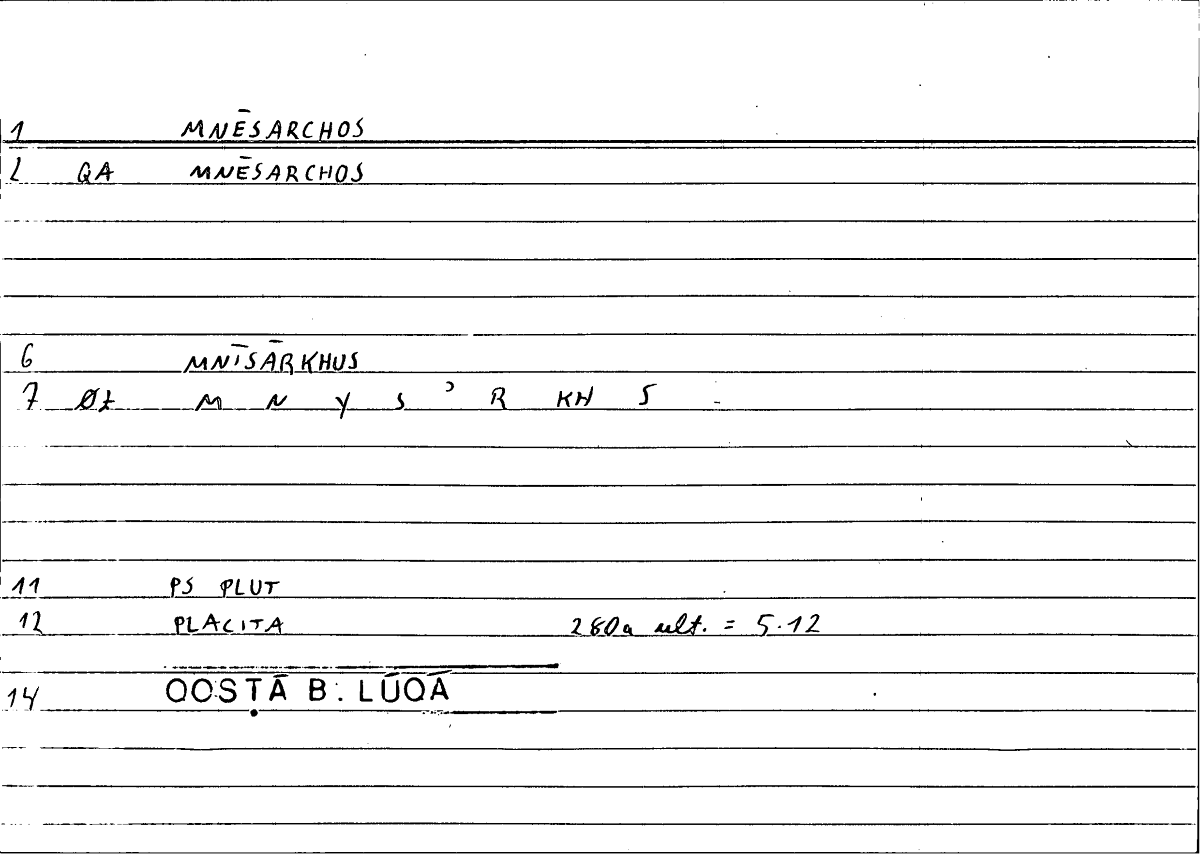 1 MNĒSARCHOS
2 QA MNĒSARCHOS
6 MNĪSĀRKHUS
7 Øł M N Y S ʾ R KH S
11 PS PLUT
12 PLACITA 280a ult. = 5.12
14 QOSṬĀ B. LŪQĀ